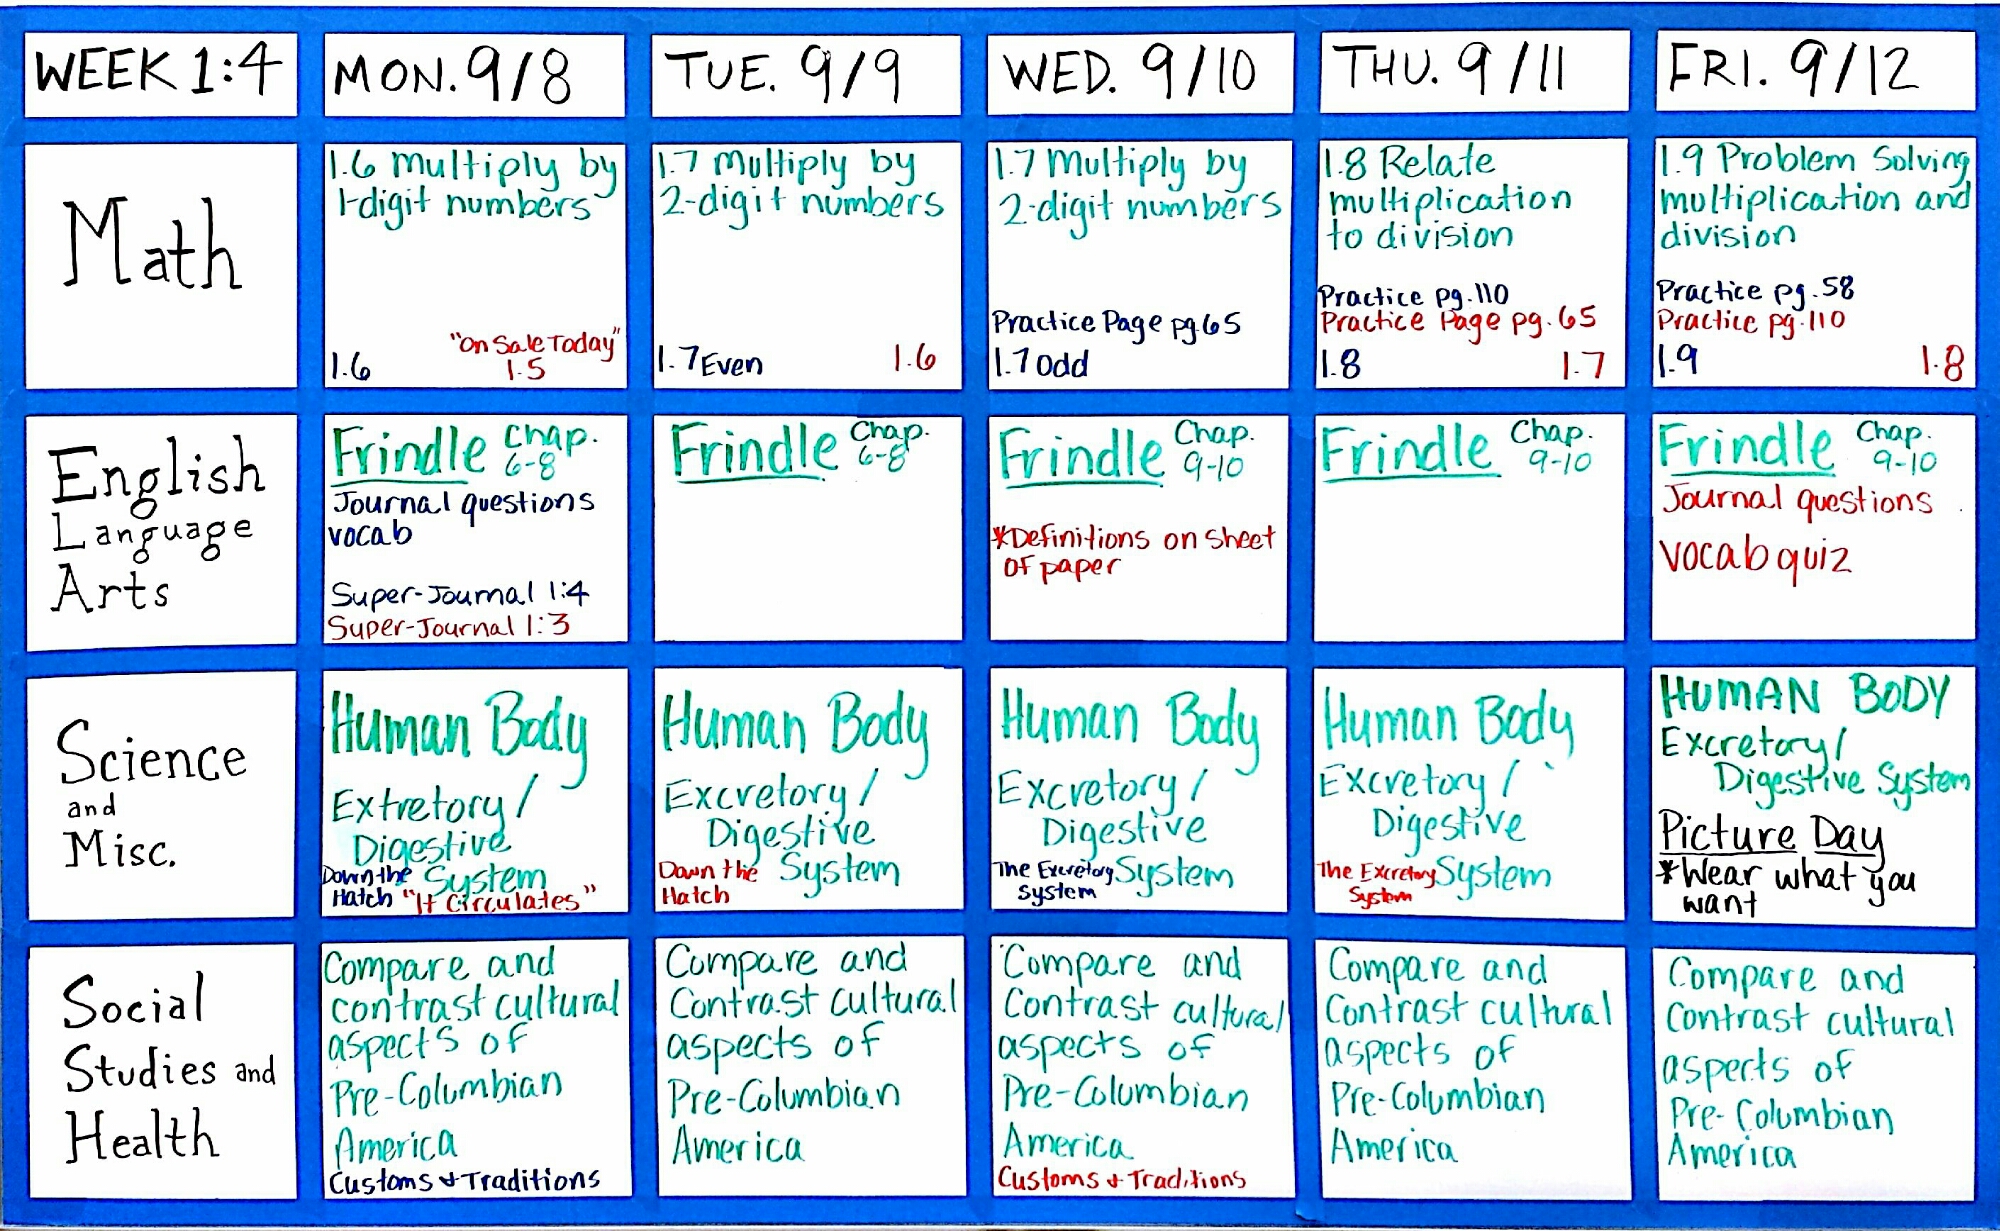 WEEK 1:4
MON. 9/8
TUE. 9/9
WED. 9/10
THU. 9/11
FRI. 9/12
Math
1.6 multiply by
1-digit numbers
"On Sale Today"
1.6 1.5
1.7 Multiply by
2-digit numbers
1.7 Even 1.6
1.7 Multiply by
2-digit numbers
Practice Page pg.65
1.7 Odd
1.8 Relate
multiplication
to division
Practice pg.110
Practice Page pg.65
1.8 1.7
1.9 Problem Solving
multiplication and
division
Practice pg.58
Practice pg.110
1.9 1.8
English
Language
Arts
Frindle Chap.
6-8
Journal questions
vocab
Super-Journal 1:4
Super-Journal 1:3
Frindle Chap.
6-8
Frindle Chap.
9-10
*Definitions on sheet
of paper
Frindle Chap.
9-10
Frindle Chap.
9-10
Journal questions
vocab quiz
Science
and
Misc.
Human Body
Extretory/
Digestive
System
Down the
Hatch "It Circulates"
Human Body
Excretory/
Digestive
System
Down the
Hatch
Human Body
Excretory/
Digestive
System
The Excretory
System
Human Body
Excretory/
Digestive
System
The Excretory
System
HUMAN BODY
Excretory/
Digestive System
Picture Day
*Wear what you
want
Social
Studies and
Health
Compare and
contrast cultural
aspects of
Pre-Columbian
America
Customs + Traditions
Compare and
Contrast cultural
aspects of
Pre-Columbian
America
Compare and
Contrast cultural
aspects of
Pre-Columbian
America
Customs + Traditions
Compare and
Contrast cultural
aspects of
Pre-Columbian
America
Compare and
Contrast cultural
aspects of
Pre-Columbian
America